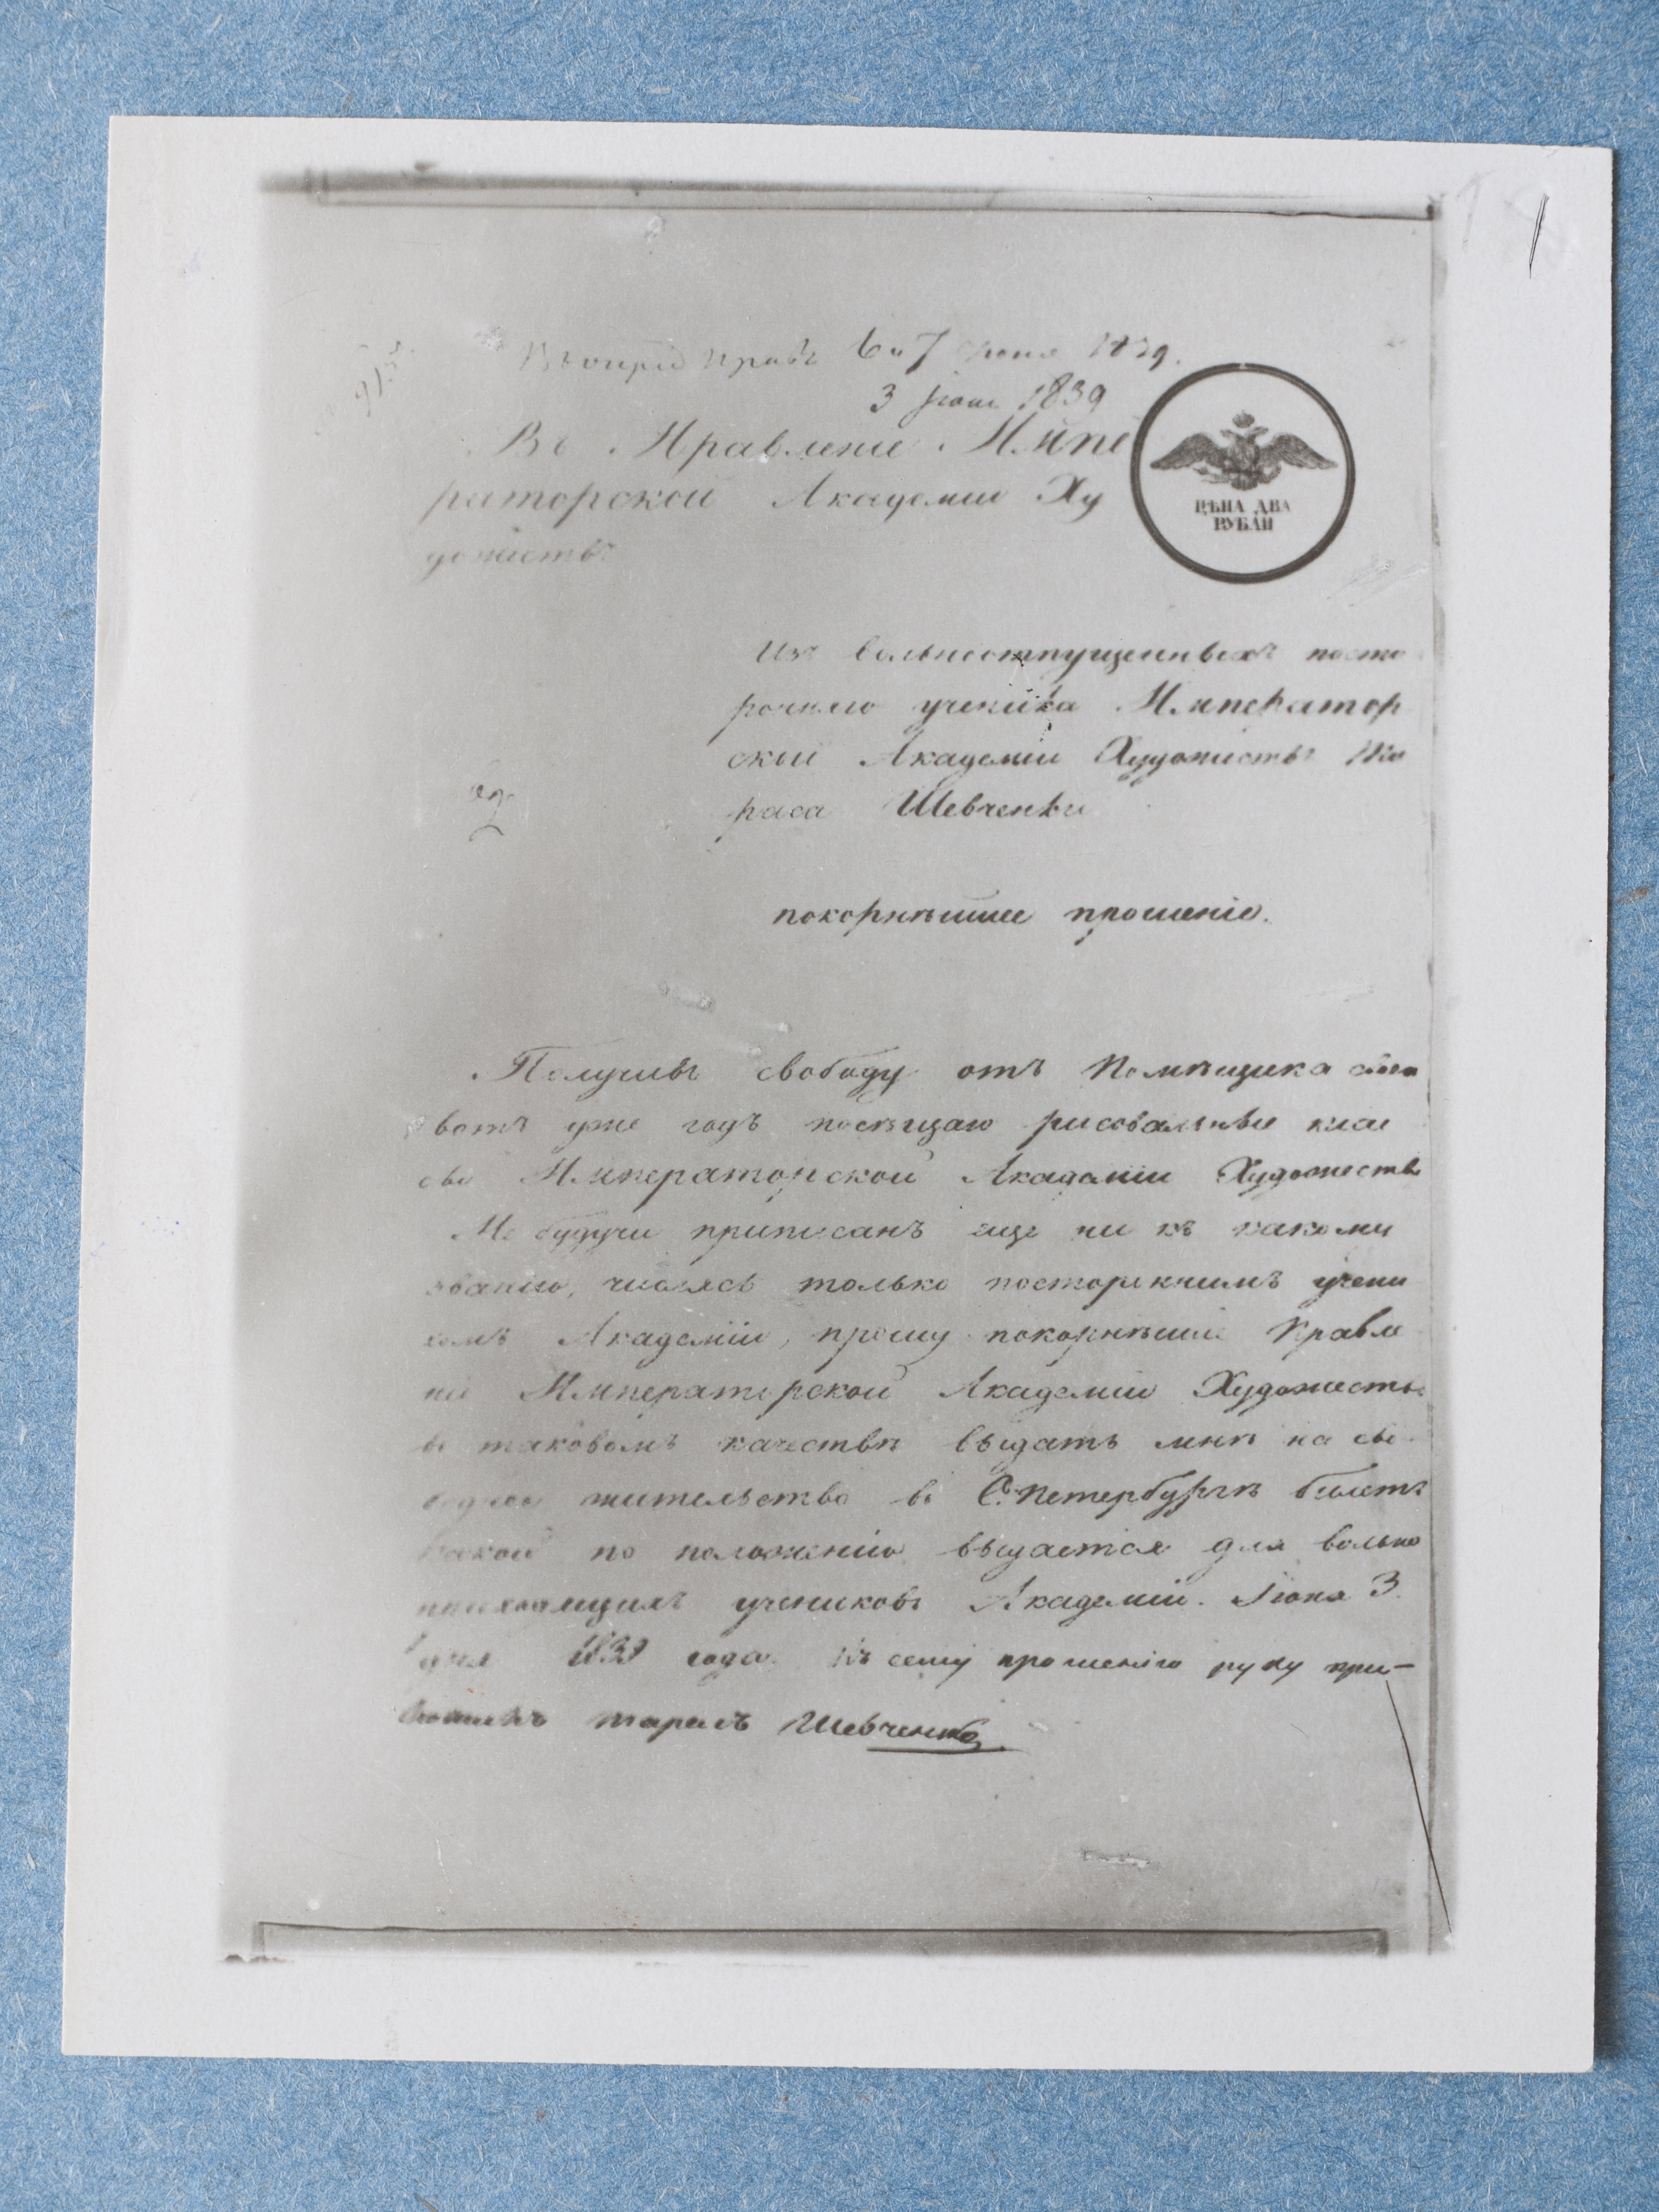 1
6 и 7 июня 1839.
3 июня 1839
Въ Правленіе Импе
раторской Академіи Ху
дожествъ
ЦѢНА ДВА
РУБЛИ
Изъ вольноотпущенныхъ посто
ронняго ученика Император
ской Академіи Художествъ Та
раса Шевченки
покорнѣйшее прошеніе.
Получивъ свободу отъ Помѣщика своего
вотъ уже годъ посѣщаю рисовальные клас
сы Императорской Академіи Художествъ
Не будучи приписанъ еще ни къ какому
званію, числясь только постороннимъ учени
комъ Академіи, прошу покорнѣйше Правле
ніе Императорской Академіи Художествъ
въ таковомъ качествѣ выдать мнѣ на сво
бодное жительство въ С. Петербургѣ билетъ
какой по положенію выдается для вольно
приходящихъ учениковъ Академіи. Іюня 3.
дня 1839 года. Къ сему прошенію руку при-
ложилъ тарасъ Шевченко